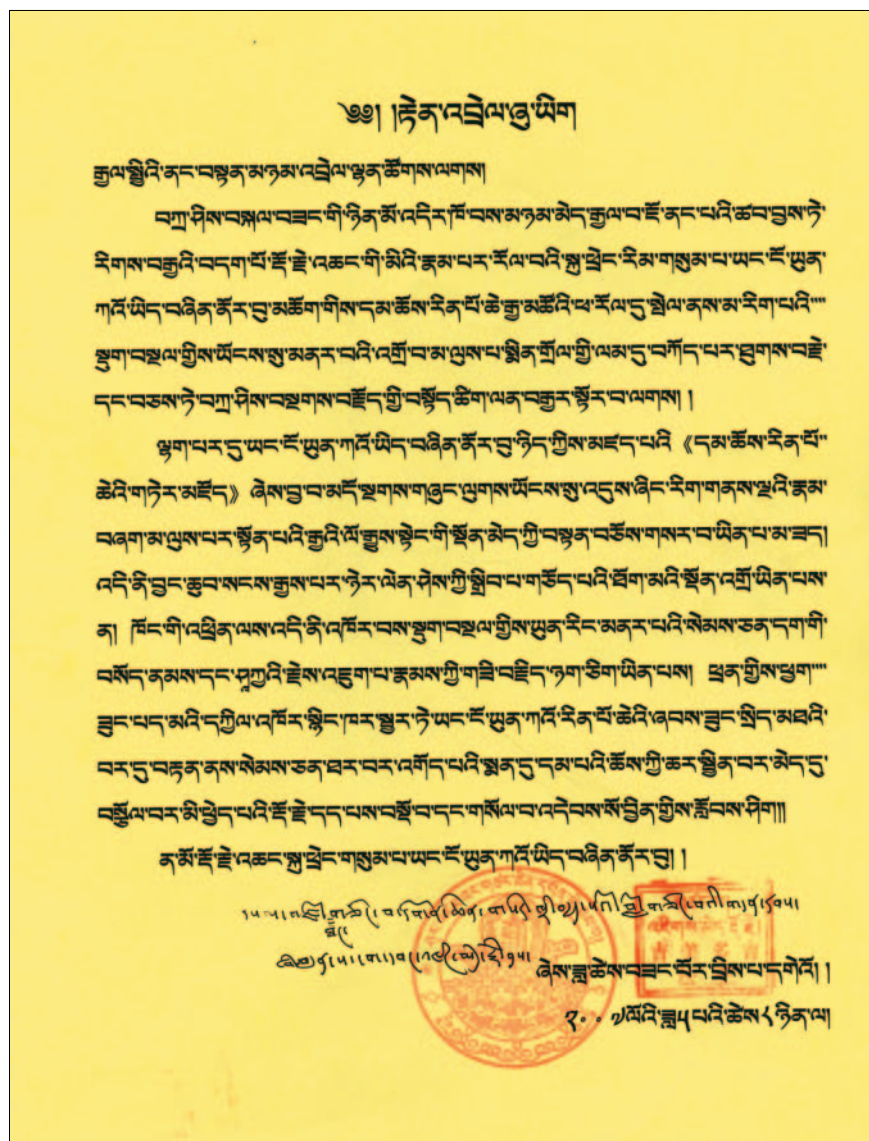 ༄༅། །རྟེན་འབྲེལ་ཞུ་ཡིག
རྒྱལ་སྤྱིའི་ནང་བསྟན་མཉམ་འབྲེལ་ལྷན་ཚོགས་ལགས།
བཀྲ་ཤིས་བསྐལ་བཟང་གི་ཉིན་མོ་འདིར་ཁོ་བས་མཉམ་མེད་རྒྱལ་བ་ཇོ་ནང་པའི་ཚབ་བྱས་ཏེ་
རིགས་བརྒྱའི་བདག་པོ་རྡོ་རྗེ་འཆང་གི་མིའི་རྣམ་པར་རོལ་བའི་སྐུ་ཕྲེང་རིམ་གསུམ་པ་ཡང་ངོ་ཡུན་
ཀའོ་ཡིད་བཞིན་ནོར་བུ་མཆོག་གིས་དམ་ཆོས་རིན་པོ་ཆེ་རྒྱ་མཚོའི་ཕ་རོལ་དུ་སྤེལ་ནས་མ་རིག་པའི་""
སྡུག་བསྔལ་གྱིས་ཡོངས་སུ་མནར་བའི་འགྲོ་བ་མ་ལུས་པ་སྨིན་གྲོལ་གྱི་ལམ་དུ་བཀོད་པར་ཐུགས་བརྗེ་
དང་བཅས་ཏེ་བཀྲ་ཤིས་བསྔགས་བརྗོད་ཀྱི་བསྟོད་ཚིག་ལན་བརྒྱར་སྟོར་བ་ལགས། །
ལྷག་པར་དུ་ཡང་ངོ་ཡུན་ཀའོ་ཡིད་བཞིན་ནོར་བུ་ཉིད་ཀྱིས་མཛད་པའི 《དམ་ཆོས་རིན་པོ"
ཆེའི་གཏེར་མཛོད》 ཞེས་བྱ་བ་མདོ་སྔགས་གཞུང་ལུགས་ཡོངས་སུ་འདུས་ཞིང་རིག་གནས་ལྔའི་རྣམ་
བཞག་མ་ལུས་པར་སྟོན་པའི་རྒྱའི་ལོ་རྒྱུས་སྟེང་གི་སྔོན་མེད་ཀྱི་བསྟན་བཅོས་གསར་བ་ཡིན་པ་མ་ཟད།
འདི་ནི་བྱང་ཆུབ་སངས་རྒྱས་པར་ཉེར་ལེན་ཤེས་ཀྱི་སྒྲིབ་པ་གཅོད་པའི་ཐོག་མའི་སྔོན་འགྲོ་ཡིན་པས་
ན། ཁོང་གི་འཕྲིན་ལས་འདི་ནི་འཁོར་བས་སྡུག་བསྔལ་གྱིས་ཡུན་རིང་མནར་པའི་སེམས་ཅན་དག་གི་
བསོད་ནམས་དང་ཤཱཀྱའི་རྗེས་འཇུག་པ་རྣམས་ཀྱི་གཟི་བརྗིད་ཉག་ཅིག་ཡིན་པས། ཕྲན་གྱིས་ཕྱག""
ཟུང་པད་མའི་དཀྱིལ་འཁོར་སྙིང་ཁར་སྦྱར་ཏེ་ཡང་ངོ་ཡུན་ཀའོ་རིན་པོ་ཆེའི་ཞབས་ཟུང་སྲིད་མཐའི་
བར་དུ་བརྟན་ནས་སེམས་ཅན་ཐར་བར་འགོད་པའི་སྨན་དུ་དམ་པའི་ཆོས་ཀྱི་ཆར་སྦྱིན་བར་མེད་དུ་
བསྩོལ་བར་མི་ཕྱེད་པའི་རྡོ་རྗེ་དད་པས་བསྔོ་བ་དང་གསོལ་བ་འདེབས་སོ་བྱིན་གྱིས་རློབས་ཤིག།
ན་མོ་རྡོ་རྗེ་འཆང་སྐུ་ཕྲེང་གསུམ་པ་ཡང་ངོ་ཡུན་ཀའོ་ཡིད་བཞིན་ནོར་བུ། །
ཞེས་ཟླ་ཚེས་བཟང་བོར་བྲིས་པ་དགེའོ། །
༢༠༠༧ལོའི་ཟླ༥པའི་ཚེས༨ཉིན་ལ།